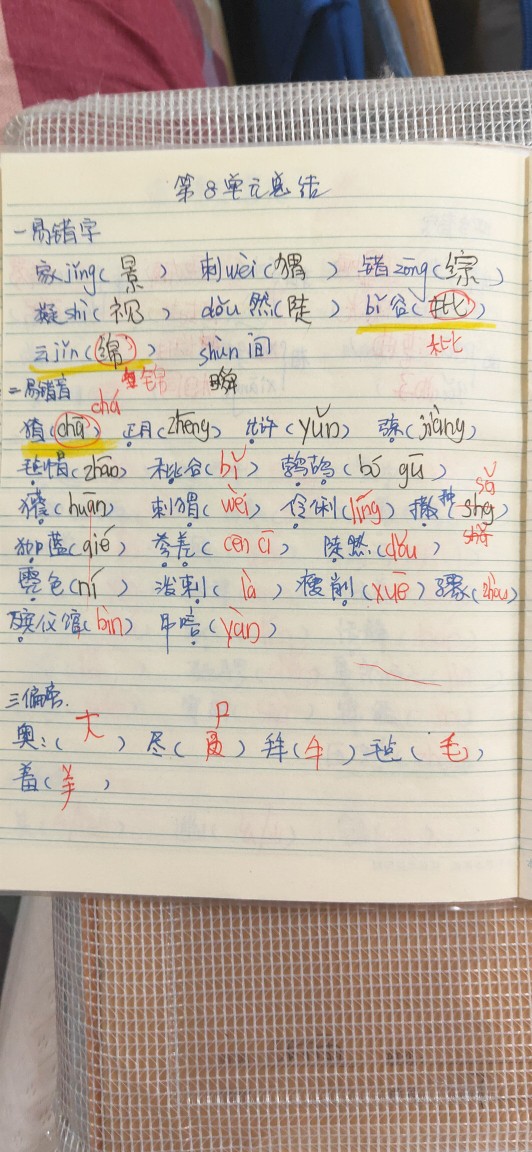 第8单元总结
一易错字
家jǐng(景) 刺wèi(猬) 错zōng(综)
凝shì(视) dǒu然(陡) bǐ谷(批)
云jǐn(绵) shùn间 秕
锦 瞬
二易错音 chá
猹(chā) 正月(zhēng) 允许(yǔn) 强(jiàng)
毡帽(zhān) 秕谷(bǐ) 鹁鸪(bó gū)
獾(huān) 刺猬(wèi) 伶俐(líng) 撒种 sǎ
伽蓝(qié) 参差(cēn cī) 陡然(dǒu)
霓色(ní) 泼剌(là) 瘦削(xuē) 骤(zhòu)
殡仪馆(bìn) 吊唁(yàn)
三偏旁.
大 尸
奥:( ) 尽( ) 牪(牛) 毡(毛)
羞(羊)